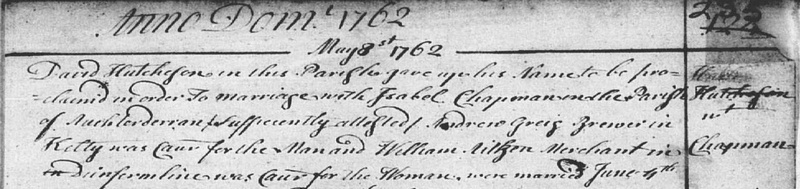 Anno Dom: 1762
May 8st 1762
David Hutcheson in this Parish gave up his Name to be pro-
-claim'd in order to marriage with Isabel Chapman in the Parish
of Auchterderran (sufficiently attested) Andrew Greig Brewer in
Ketty was Caur for the Man and William Aitken Merchant in
Dunfermline was Caur for the Woman. were married June 4th
Hutcheson
wt
Chapman